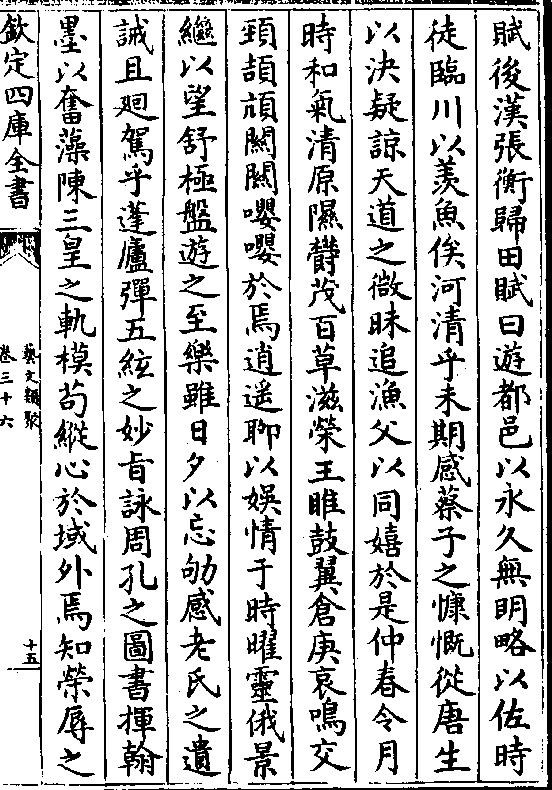 賦後漢張衡歸田賦曰遊都邑以永久無明略以佐時
徒臨川以羨魚俟河清乎未期感蔡子之慷慨從唐生
以決疑諒天道之微昧追漁父以同嬉於是仲春令月
時和氣清原隰鬱茂百草滋榮王雎鼓翼倉庚哀鳴交
頸頡頏關關嚶嚶於焉逍遥聊以娛情于時曜靈俄景
繼以望舒極盤遊之至樂雖日夕以忘劬感老氏之遺
誡且廻駕乎蓬廬彈五絃之妙旨詠周孔之圖書揮翰
墨以奮藻陳三皇之軌模苟縱心於域外焉知榮辱之
欽定四庫全書
藝文類聚
卷三十六
十五